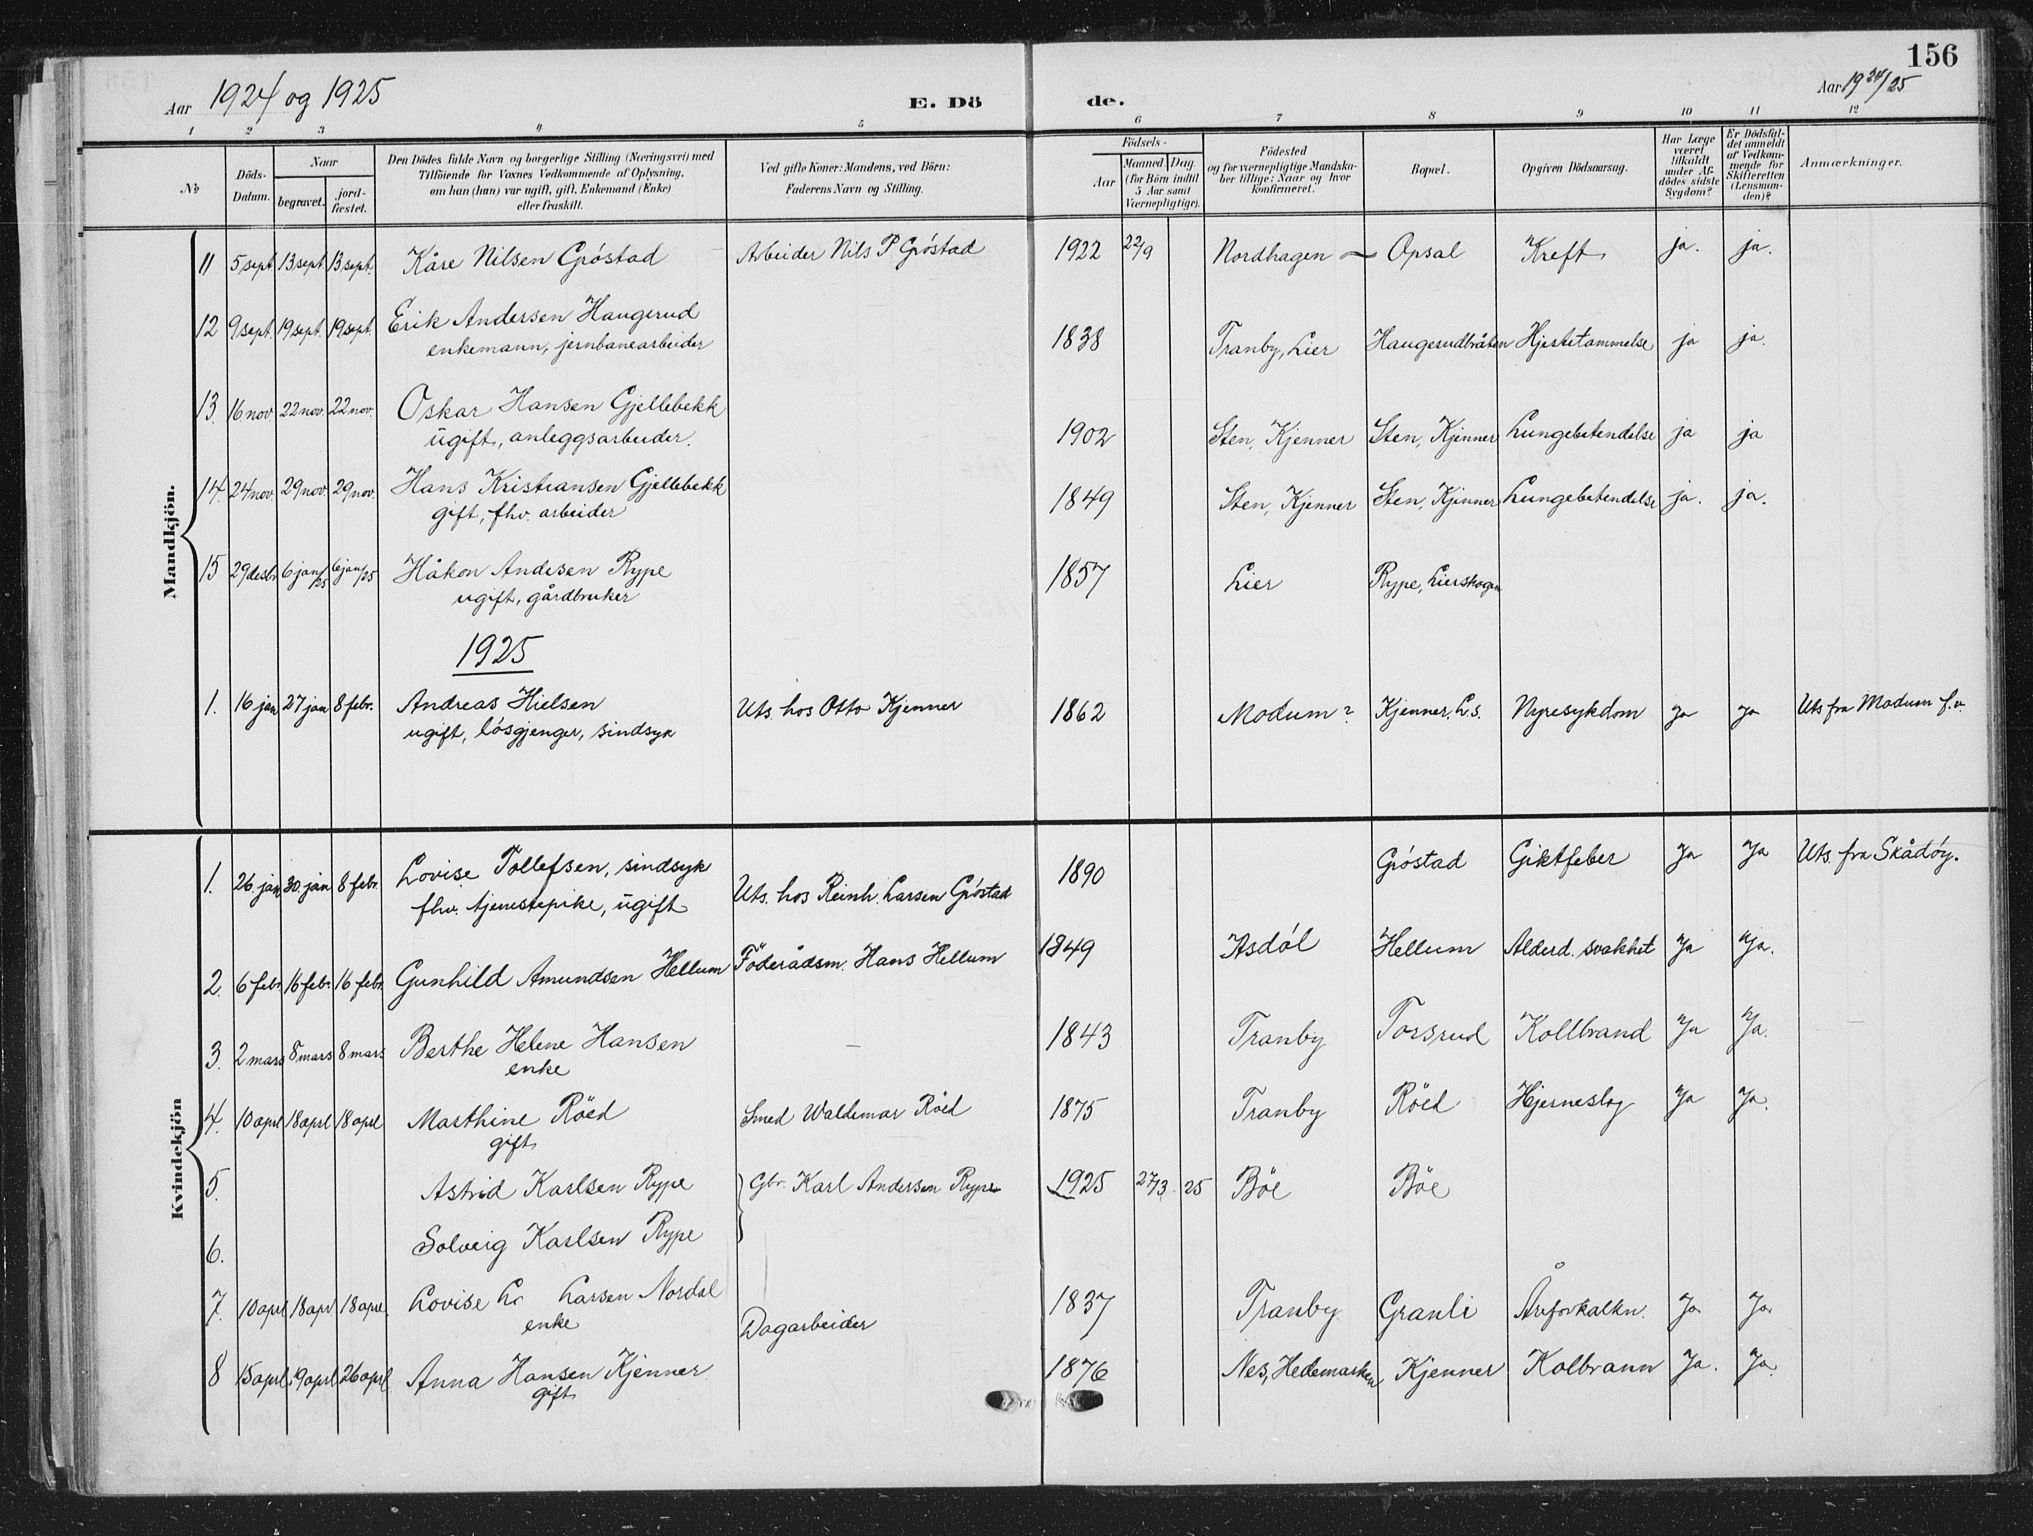 156
Aar 1924 og 1925
E. Döde.
Aar 1924/25
1 2 3 4 5 6 7 8 9 10 11 12
No
Döds-Datum.
Naar
begravet.
jord-fæstet.
Den Dödes fulde Navn og borgerlige Stilling (Næringsvei) med
Tilföiende for Voxnes Vedkommende af Oplysning,
om han (hun) var ugift, gift, Enkemand (Enke)
eller fraskilt.
Ved gifte Koner: Mandens, ved Börn:
Faderens Navn og Stilling.
Födsels-
Aar
Maaned. Dag.
(for Börn indtil
5 Aar samt
Værnepligtige).
Födested
og for værnepligtige Mandska-
ber tillige: Naar og hvor
konfirmeret.
Bopæl.
Opgiven Dödsaarsag.
Har Læge
været
tilkaldt
under Af-
dödes sidste
Sygdom?
Er Dödsfal-
det anmeldt
af Vedkom-
mende for
Skifteretten
(Lensman-
den)?
Anmærkninger.
Mandkjön.
11 5 sept. 13 sept. 13 sept. Kåre Nilsen Gröstad Arbeider Nils P Gröstad 1922 22/9 Nordhagen — Opsal Kreft ja. ja.
12 9 sept. 19 sept. 19 sept. Erik Andersen Haugerud 1838 Tranby, Lier Haugerudbråten Hjertelammelse ja ja.
enkemann, jernbanearbeider
13. 16 nov. 22 nov. 22 nov. Oskar Hansen Gjellebekk 1902 Sten, Kjenner Sten, Kjenner Lungebetendelse ja ja
ugift, anleggsarbeider.
14. 24 nov. 29 nov. 29 nov. Hans Kristiansen Gjellebekk 1849 Sten, Kjenner Sten, Kjenner Lungebetendelse ja. ja.
gift, fhv. arbeider
15 29 desbr 6 jan/25 6 jan/25 Håkon Andersen Rype 1857 Lier Rype, Lierskogen
ugift, gårdbruker
1925
1. 16 jan 27 jan 8 febr. Andreas Hielsen Uts. hos Otto Kjenner 1862 Modum? Kjenner, L.s. Nyresykdom ja ja Uts fra Modum f.v.
ugift, lösgjenger, sindsyk
Kvindekjön
1. 26. jan 30. jan 8 febr. Lovise Tollefsen, sindsyk Uts. hos Reinh. Larsen Gröstad 1890 Gröstad Giktfeber Ja Ja Uts. fra Skådöy.
fhv. tjenestepike, ugift
2. 6 febr. 16 febr. 16 febr. Gunhild Amundsen Hellum Föderådsm. Hans Hellum 1849 Asdöl Hellum Alderd. svakhet Ja Ja.
3. 2 mars 8 mars 8 mars Berthe Helene Hansen — 1843 Tranby Torsrud Kollbrand Ja Ja.
enke
4. 10 aprl 18 aprl 18 aprl Marthine Röed Smed Waldemar Röed 1875 Tranby Röed Hjerneslag Ja Ja.
gift
5. Astrid Karlsen Rype Gbr. Karl Andersen Rype 1925 27/3 25 Böe Böe
6. Solveig Karlsen Rype
7. 10 aprl 18 aprl 18 aprl. Lovise L. Larsen Nordal Dagarbeider 1837 Tranby Granli Åreforkalkn. Ja Ja
enke
8 15 aprl 19 aprl 26 aprl. Anna Hansen Kjenner 1876 Nes, Hedemarken Kjenner Kolbrann Ja. Ja.
gift